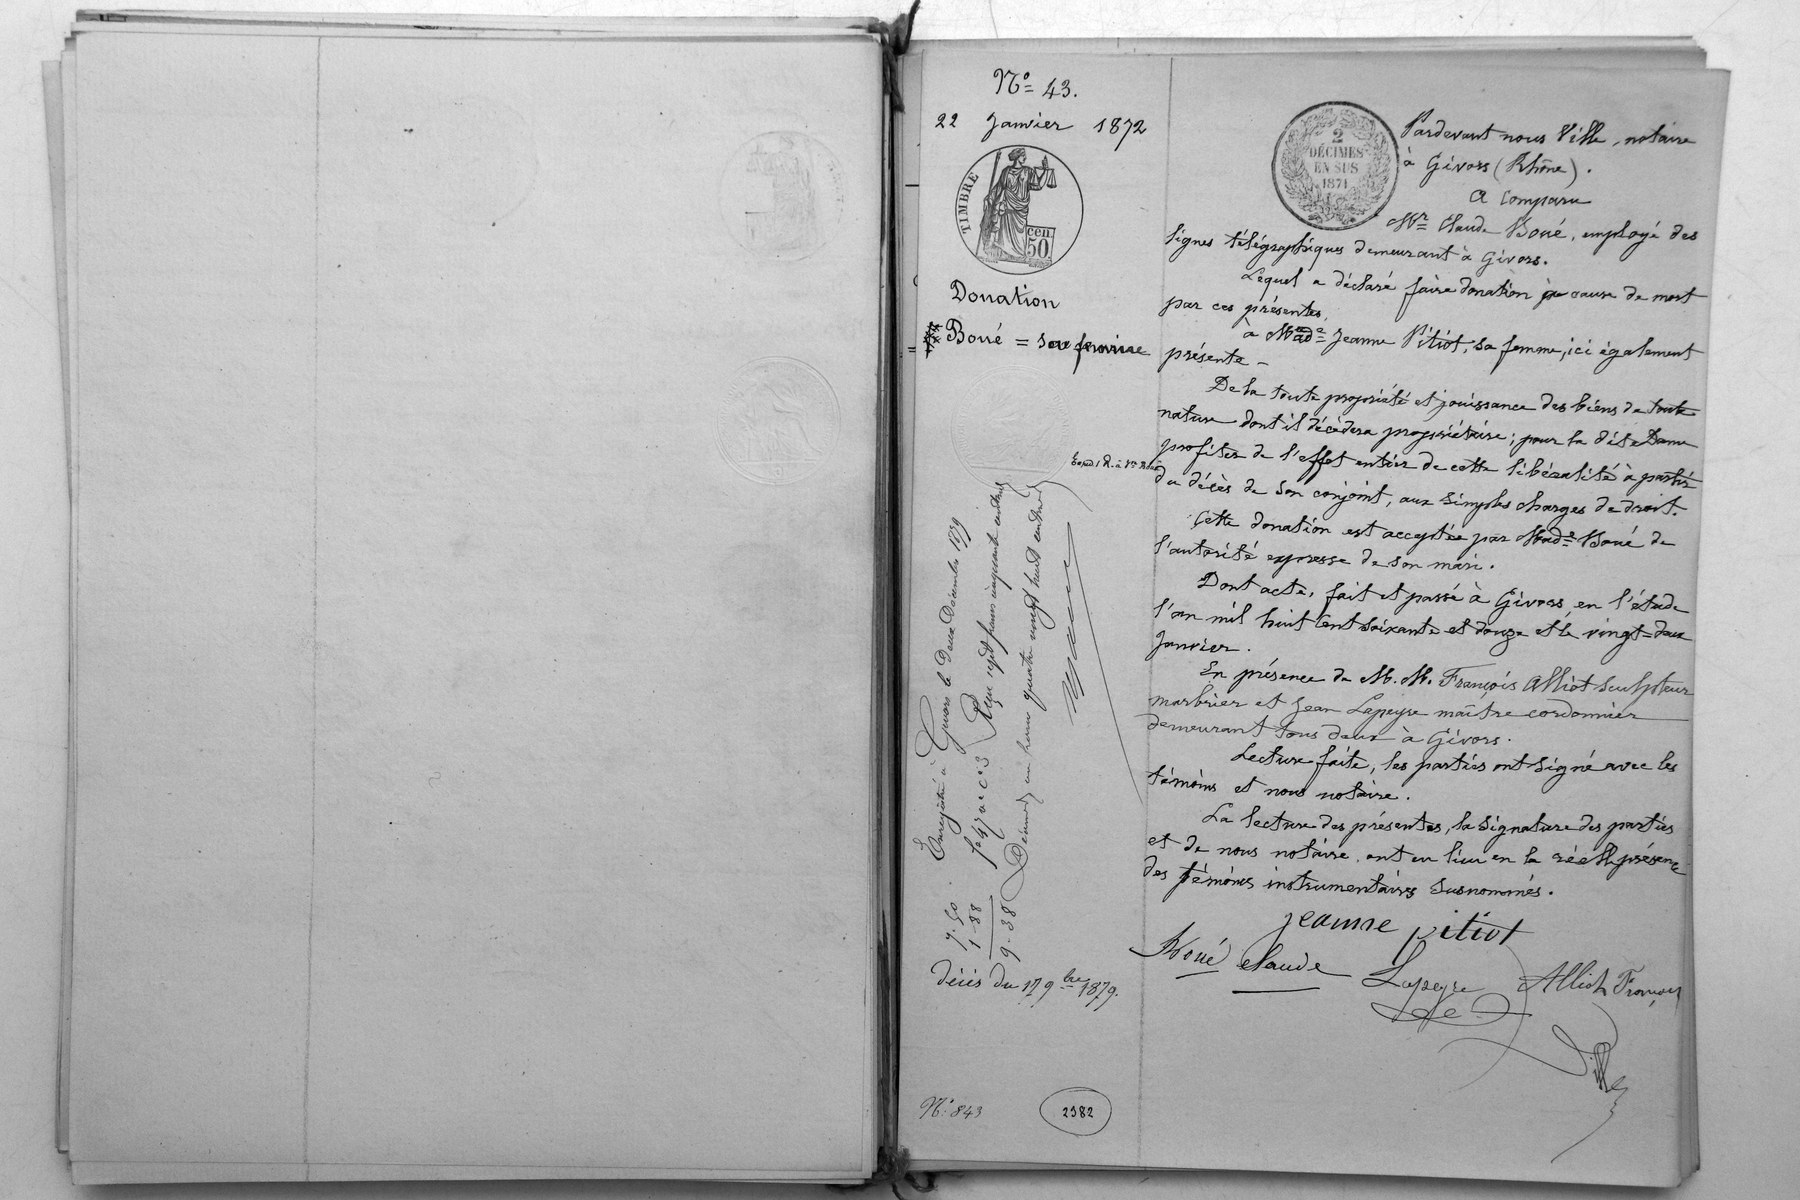 N° 43.
22 Janvier 1872
TIMBRE
50 cen.
Donation
Boué = sa femme
2
DÉCIMES
EN SUS
1871
Pardevant nous Ville, notaire
à Givors (Rhône).
A Comparu
Mr Claude Boué, employé des
lignes télégraphiques demeurant à Givors.
Lequel a déclaré faire donation à cause de mort
par ces présentes,
à Made Jeanne Pitiot, sa femme, ici également
présente -
De la toute propriété et jouissance des biens de toute
nature dont il décèdera propriétaire; pour la dite Dame
profiter de l'effet entier de cette libéralité à partir
du décès de son conjoint, aux simples charges de droit.
Cette donation est acceptée par Made Boué de
l'autorité expresse de son mari.
Dont acte, fait et passé à Givors, en l'étude
l'an mil huit cent soixante et douze et le vingt-deux
Janvier.
En présence de M. M. François Alliot sculpteur
marbrier et Jean Lapeyre maître cordonnier
demeurant tous deux à Givors.
Lecture faite, les parties ont signé avec les
témoins et nous notaire.
La lecture des présentes, la signature des parties
et de nous notaire ont eu lieu en la réelle présence
des témoins instrumentaires susnommés.
jeanne pitiot
Boué Claude
Lapeyre
Alliot François
Ville
Enregistré à Givors le Douze Décembre 1879
f° 47 v° c 3 Reçu sept francs cinquante centimes
Décimes un franc quatre vingt huit centimes
7.50
1.88
9.38
Décès du 17 9bre 1879.
N° 843
2982